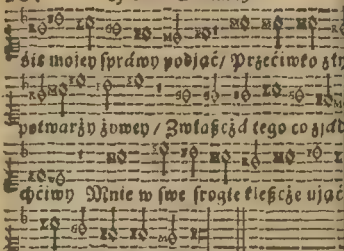 śie mojey ſpráwy podjąć / Przećiwko zły
potwarży żywey / Zwłaſzcżá tego co zjád
chćiwy Mnie w ſwe ſrogie kleßcże ująć